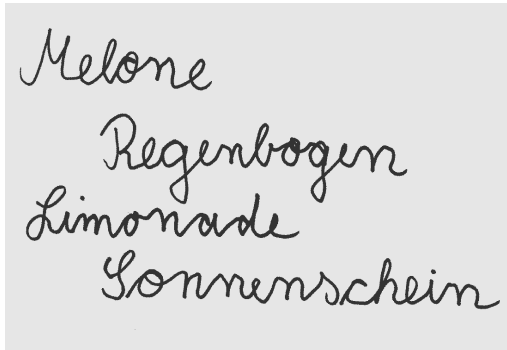 Melone
Regenbogen
Limonade
Sonnenschein